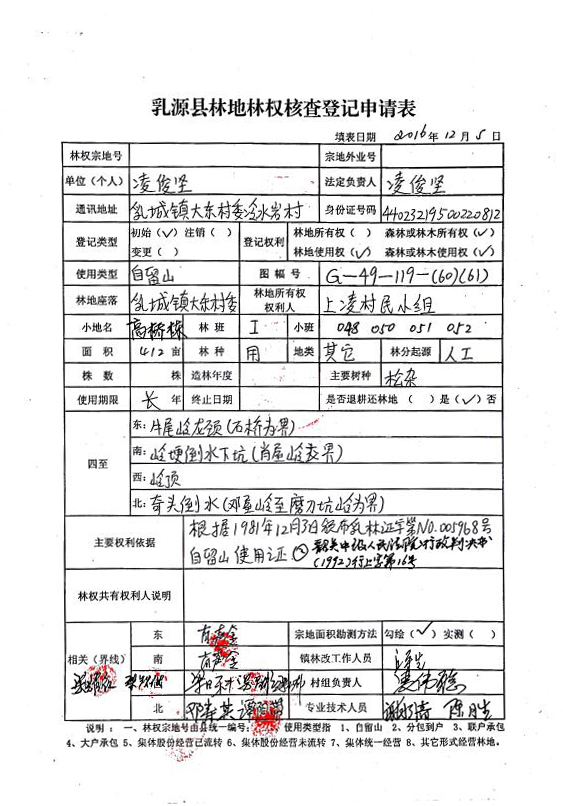 乳源县林地林权核查登记申请表
填表日期 2016年12月5日
林权宗地号 宗地外业号
单位(个人) 凌俊坚 法定负责人 凌俊坚
通讯地址 乳城镇大东村委冷水岩村 身份证号码 440232195002208​12
登记类型 初始(√)注销( ) 变更( ) 登记权利 林地所有权( ) 森林或林木所有权(√)
林地使用权(√) 森林或林木使用权(√)
使用类型 自留山 图幅号 G-49-119-(60)(61)
林地座落 乳城镇大东村委 林地所有权权利人 上凌村民小组
小地名 高桥栋 林班 I 小班 048 050 051 052
面积 412亩 林种 用 地类 其它 林分起源 人工
株数 株 造林年度 主要树种 松杂
使用期限 长年 终止日期 是否退耕还林地 ( )是(√)否
四至
东:牛尾岭龙颈(石桥为界)
南:岭埂倒水下坑(肖屋岭为界)
西:岭顶
北:奇头倒水(邓屋岭至磨刀坑岭为界)
主要权利依据 根据1981年12月3日颁布乳林证字第NO.005968号
自留山使用证 ② 韶关中级人民法院行政判决书
(1992)行上字第16号
林权共有权利人说明
相关(界线)
东 宗地面积勘测方法 勾绘(√)实测( )
南 镇林改工作人员
村组负责人
北 专业技术人员
说明:一、林权宗地号由县统一编号 使用类型指 1、自留山 2、分包到户 3、联户承包
4、大户承包 5、集体股份经营已流转 6、集体股份经营未流转 7、集体统一经营 8、其它形式经营林地。